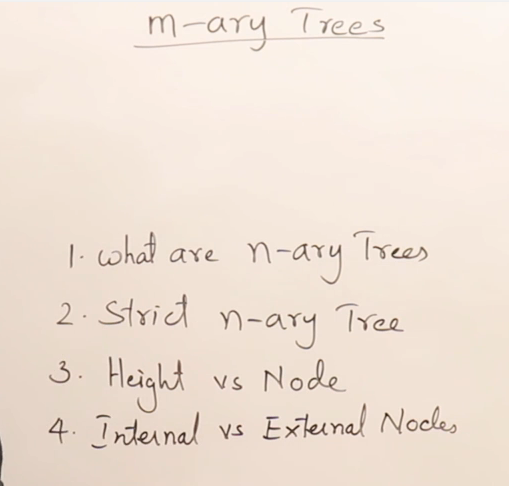 m-ary Trees
1. what are n-ary Trees
2. Strict n-ary Tree
3. Height vs Node
4. Internal vs External Nodes